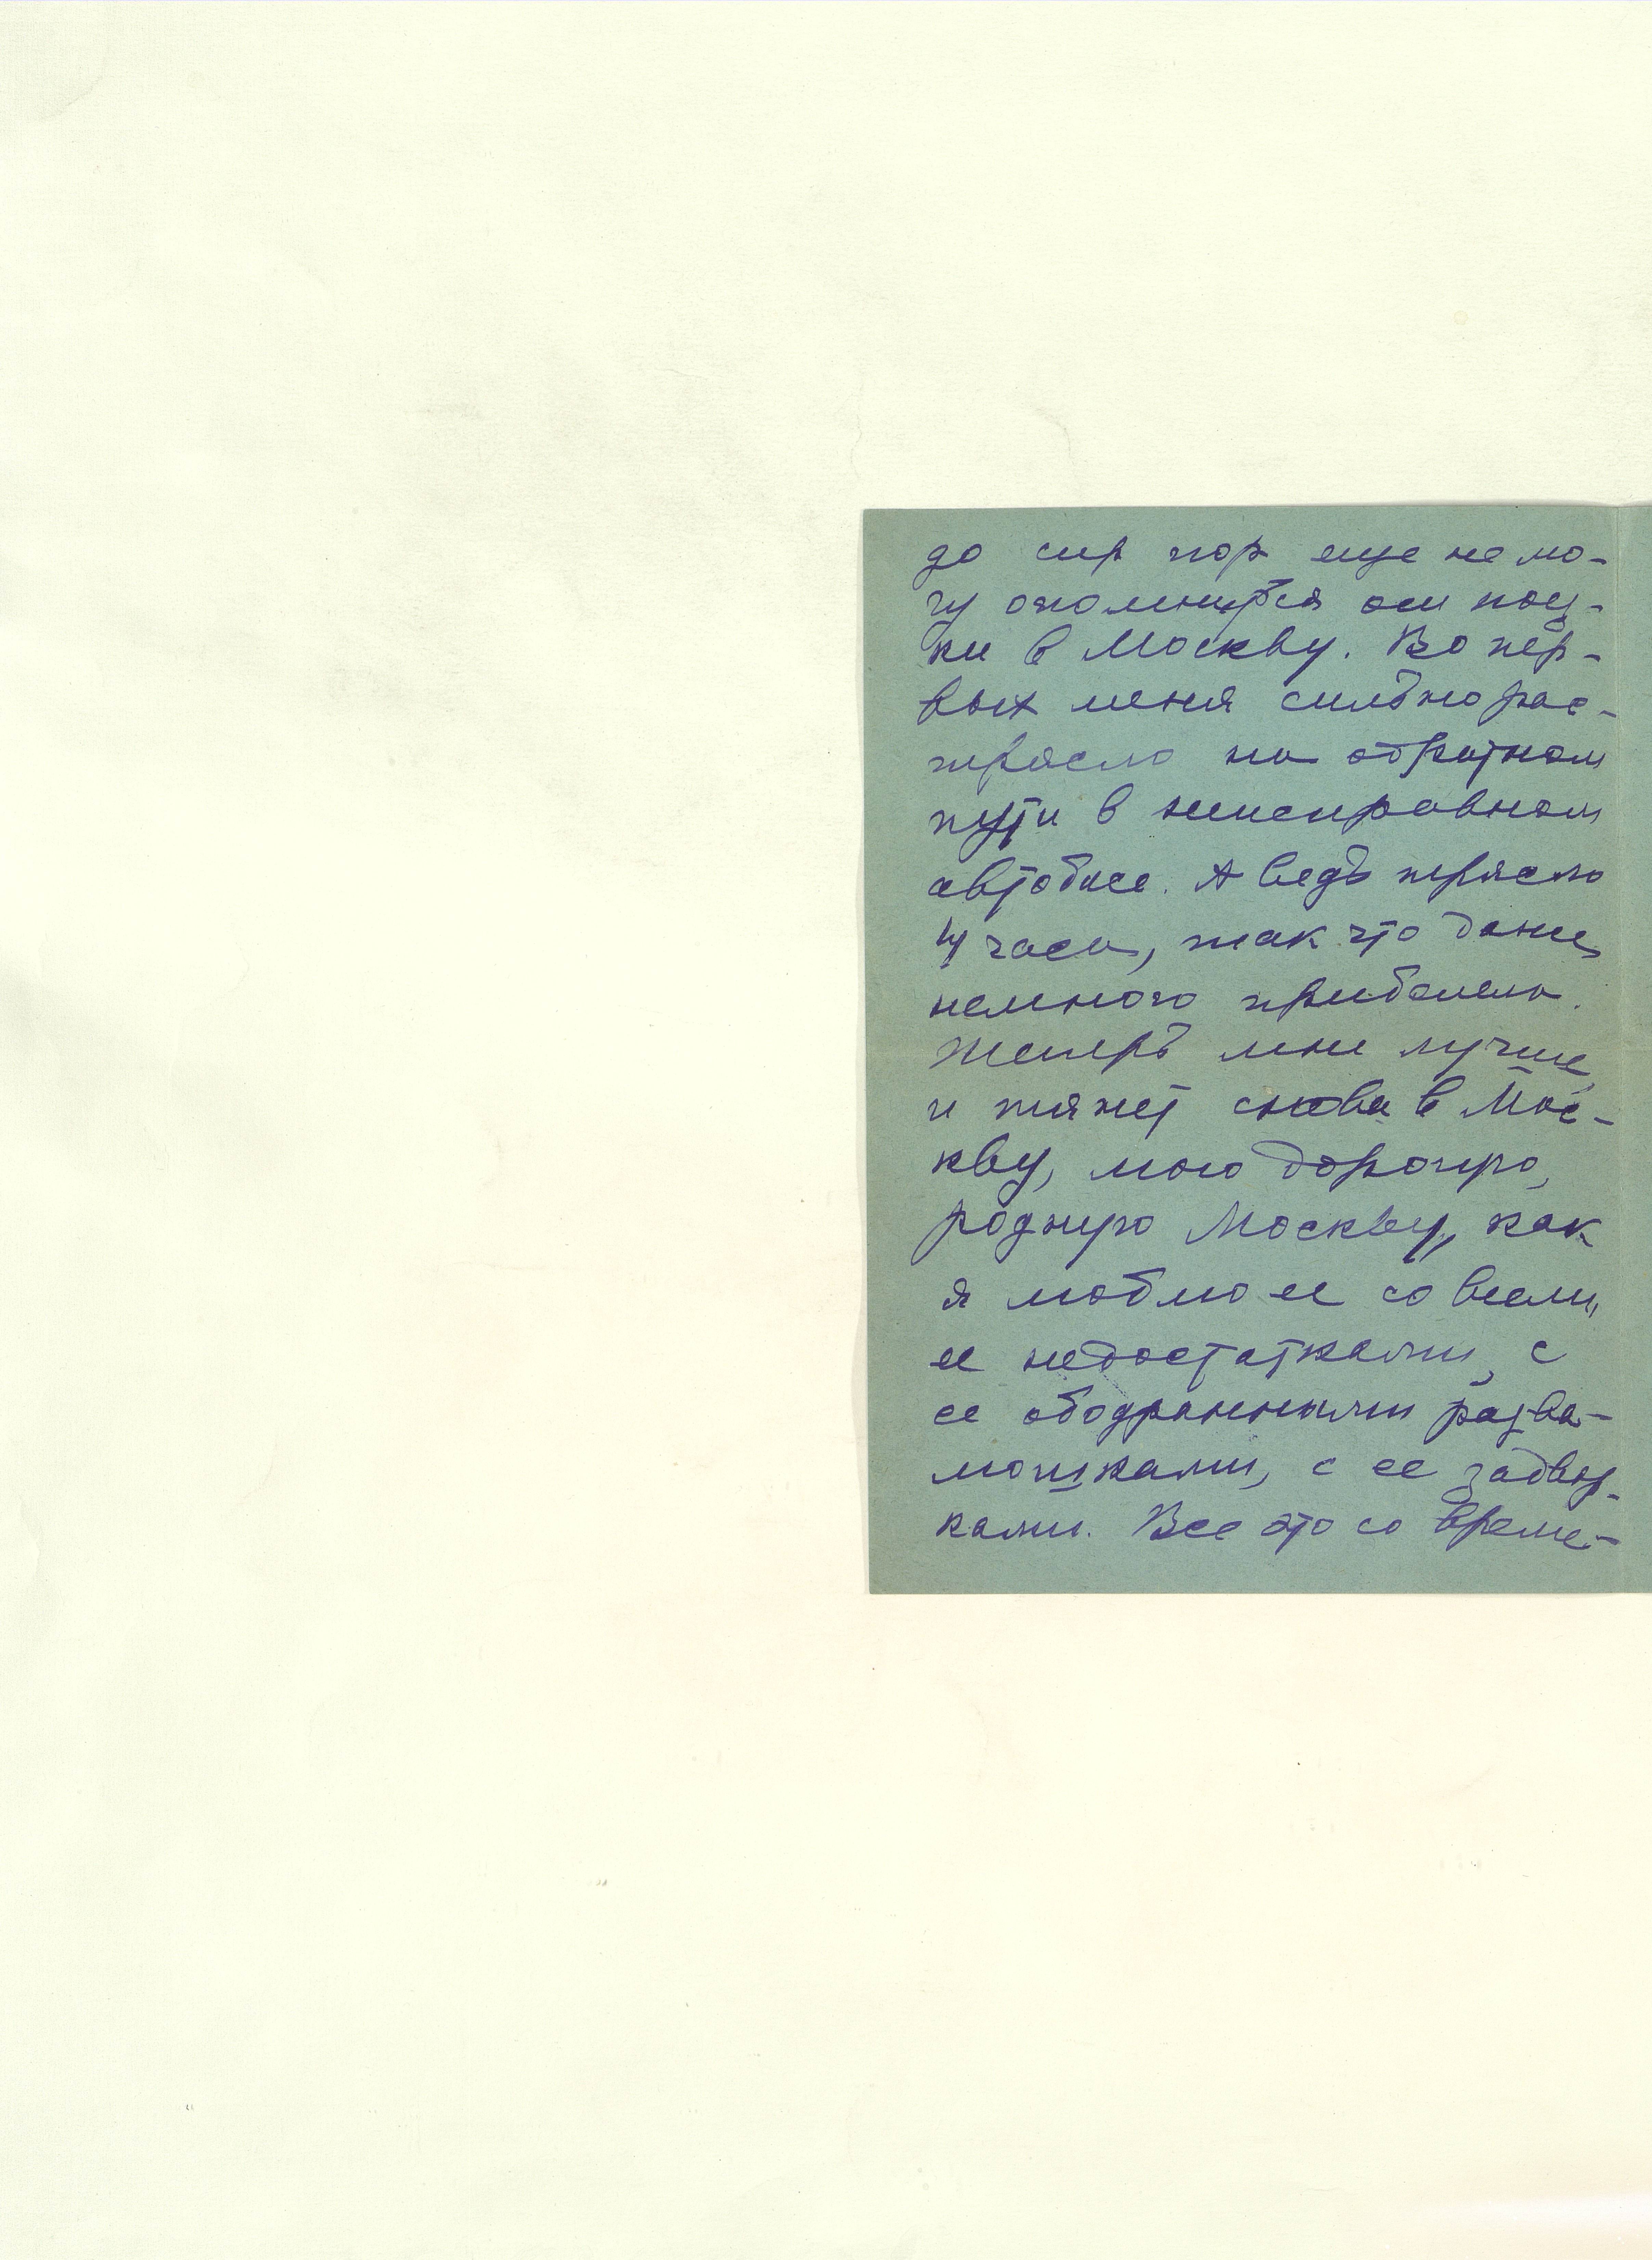 до сих пор еще не мо-
гу опомниться от поезд-
ки в Москву. Во пер-
вых меня сильно рас-
трясло на обратном
пути в неисправном
автобусе. А ведь трясло
4 часа, так что даже
немного приболела.
Теперь мне лучше,
и тянет снова в Мос-
кву, мою дорогую,
родную Москву, как
я люблю ее со всеми
ее недостатками, с
ее ободранными разва-
люшками, с ее задвор-
ками. Все это со време-